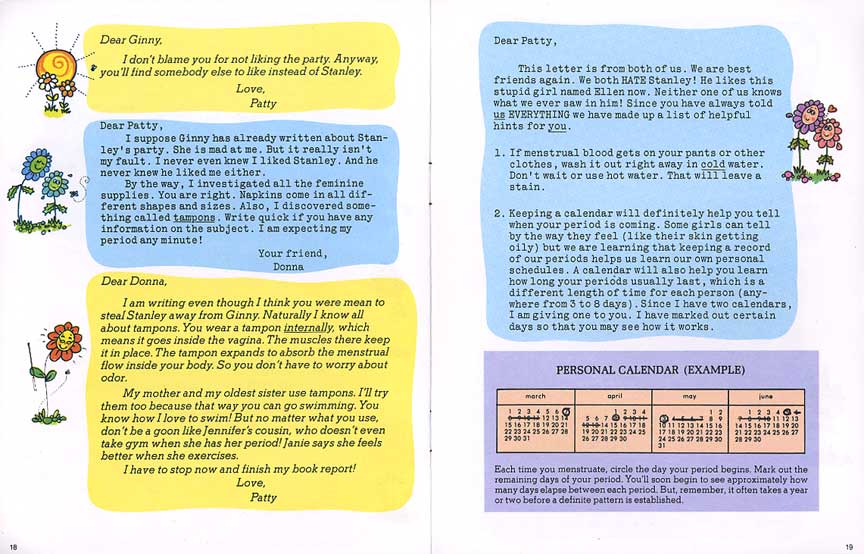 Dear Ginny,
I don't blame you for not liking the party. Anyway,
you'll find somebody else to like instead of Stanley.
Love,
Patty
Dear Patty,
I suppose Ginny has already written about Stan-
ley's party. She is mad at me. But it really isn't
my fault. I never even knew I liked Stanley. And he
never knew he liked me either.
By the way, I investigated all the feminine
supplies. You are right. Napkins come in all dif-
ferent shapes and sizes. Also, I discovered some-
thing called tampons. Write quick if you have any
information on the subject. I am expecting my
period any minute!
Your friend,
Donna
Dear Donna,
I am writing even though I think you were mean to
steal Stanley away from Ginny. Naturally I know all
about tampons. You wear a tampon internally, which
means it goes inside the vagina. The muscles there keep
it in place. The tampon expands to absorb the menstrual
flow inside your body. So you don't have to worry about
odor.
My mother and my oldest sister use tampons. I'll try
them too because that way you can go swimming. You
know how I love to swim! But no matter what you use,
don't be a goon like Jennifer's cousin, who doesn't even
take gym when she has her period! Janie says she feels
better when she exercises.
I have to stop now and finish my book report!
Love,
Patty
18
Dear Patty,
This letter is from both of us. We are best
friends again. We both HATE Stanley! He likes this
stupid girl named Ellen now. Neither one of us knows
what we ever saw in him! Since you have always told
us EVERYTHING we have made up a list of helpful
hints for you.
1. If menstrual blood gets on your pants or other
clothes, wash it out right away in cold water.
Don't wait or use hot water. That will leave a
stain.
2. Keeping a calendar will definitely help you tell
when your period is coming. Some girls can tell
by the way they feel (like their skin getting
oily) but we are learning that keeping a record
of our periods helps us learn our own personal
schedules. A calendar will also help you learn
how long your periods usually last, which is a
different length of time for each person (any-
where from 3 to 8 days). Since I have two calendars,
I am giving one to you. I have marked out certain
days so that you may see how it works.
PERSONAL CALENDAR (EXAMPLE)
march
1 2 3 4 5 6 7
12 13 14
15 16 17 18 19 20 21
22 23 24 25 26 27 28
29 30 31
april
1 2 3 4
5 6 7
14 15 16 17 18
19 20 21 22 23 24 25
26 27 28 29 30
may
1 2
8 9
10 11 12 13 14 15 16
17 18 19 20 21 22 23
24 25 26 27 28 29 30
31
june
1 2 3 4
12 13
28 29 30
Each time you menstruate, circle the day your period begins. Mark out the
remaining days of your period. You'll soon begin to see approximately how
many days elapse between each period. But, remember, it often takes a year
or two before a definite pattern is established.
19